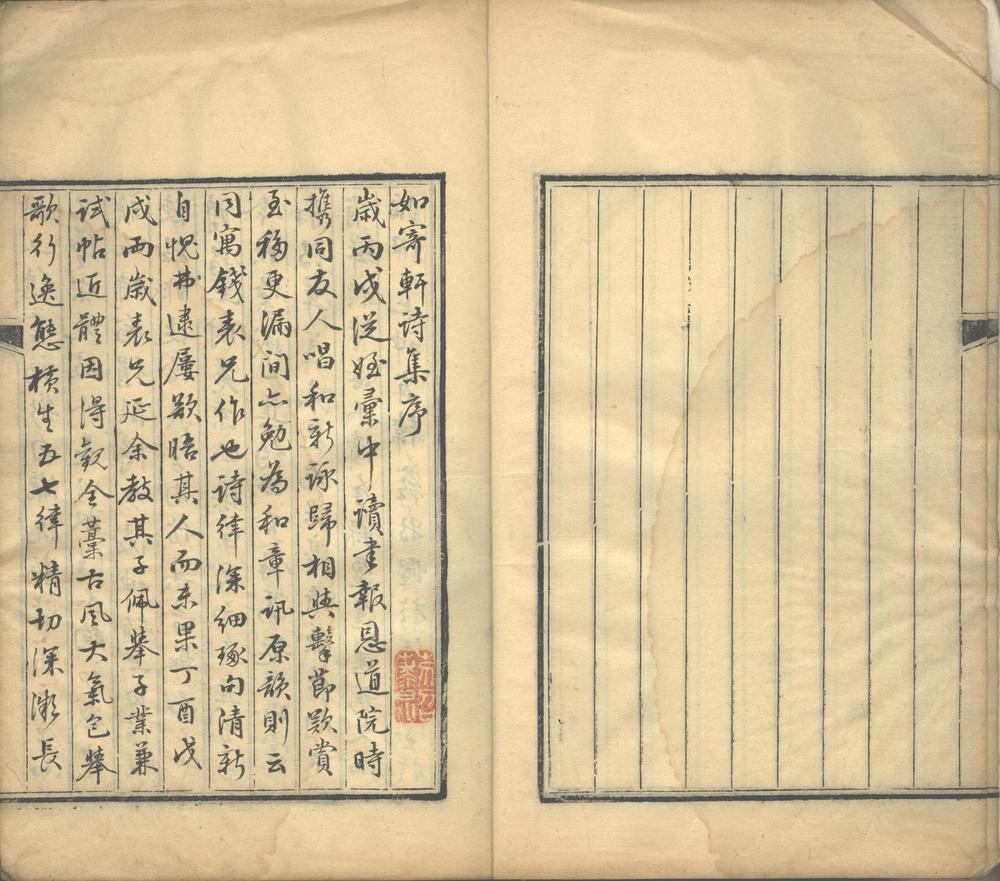 如寄軒詩集序
歲丙戌從姪彙中讀書報恩道院時
攜同友人唱和新詠歸相與擊節歎賞
至移更漏間亦勉為和章訊原韻則云
同寓錢表兄作也詩律深細琢句清新
自愧弗逮屢欲晤其人而未果丁酉戊
戌兩歲表兄延余教其子佩舉子業兼
試帖近體因得觀全藁古風大氣包舉
歌行逸態橫生五七律精切深漱長